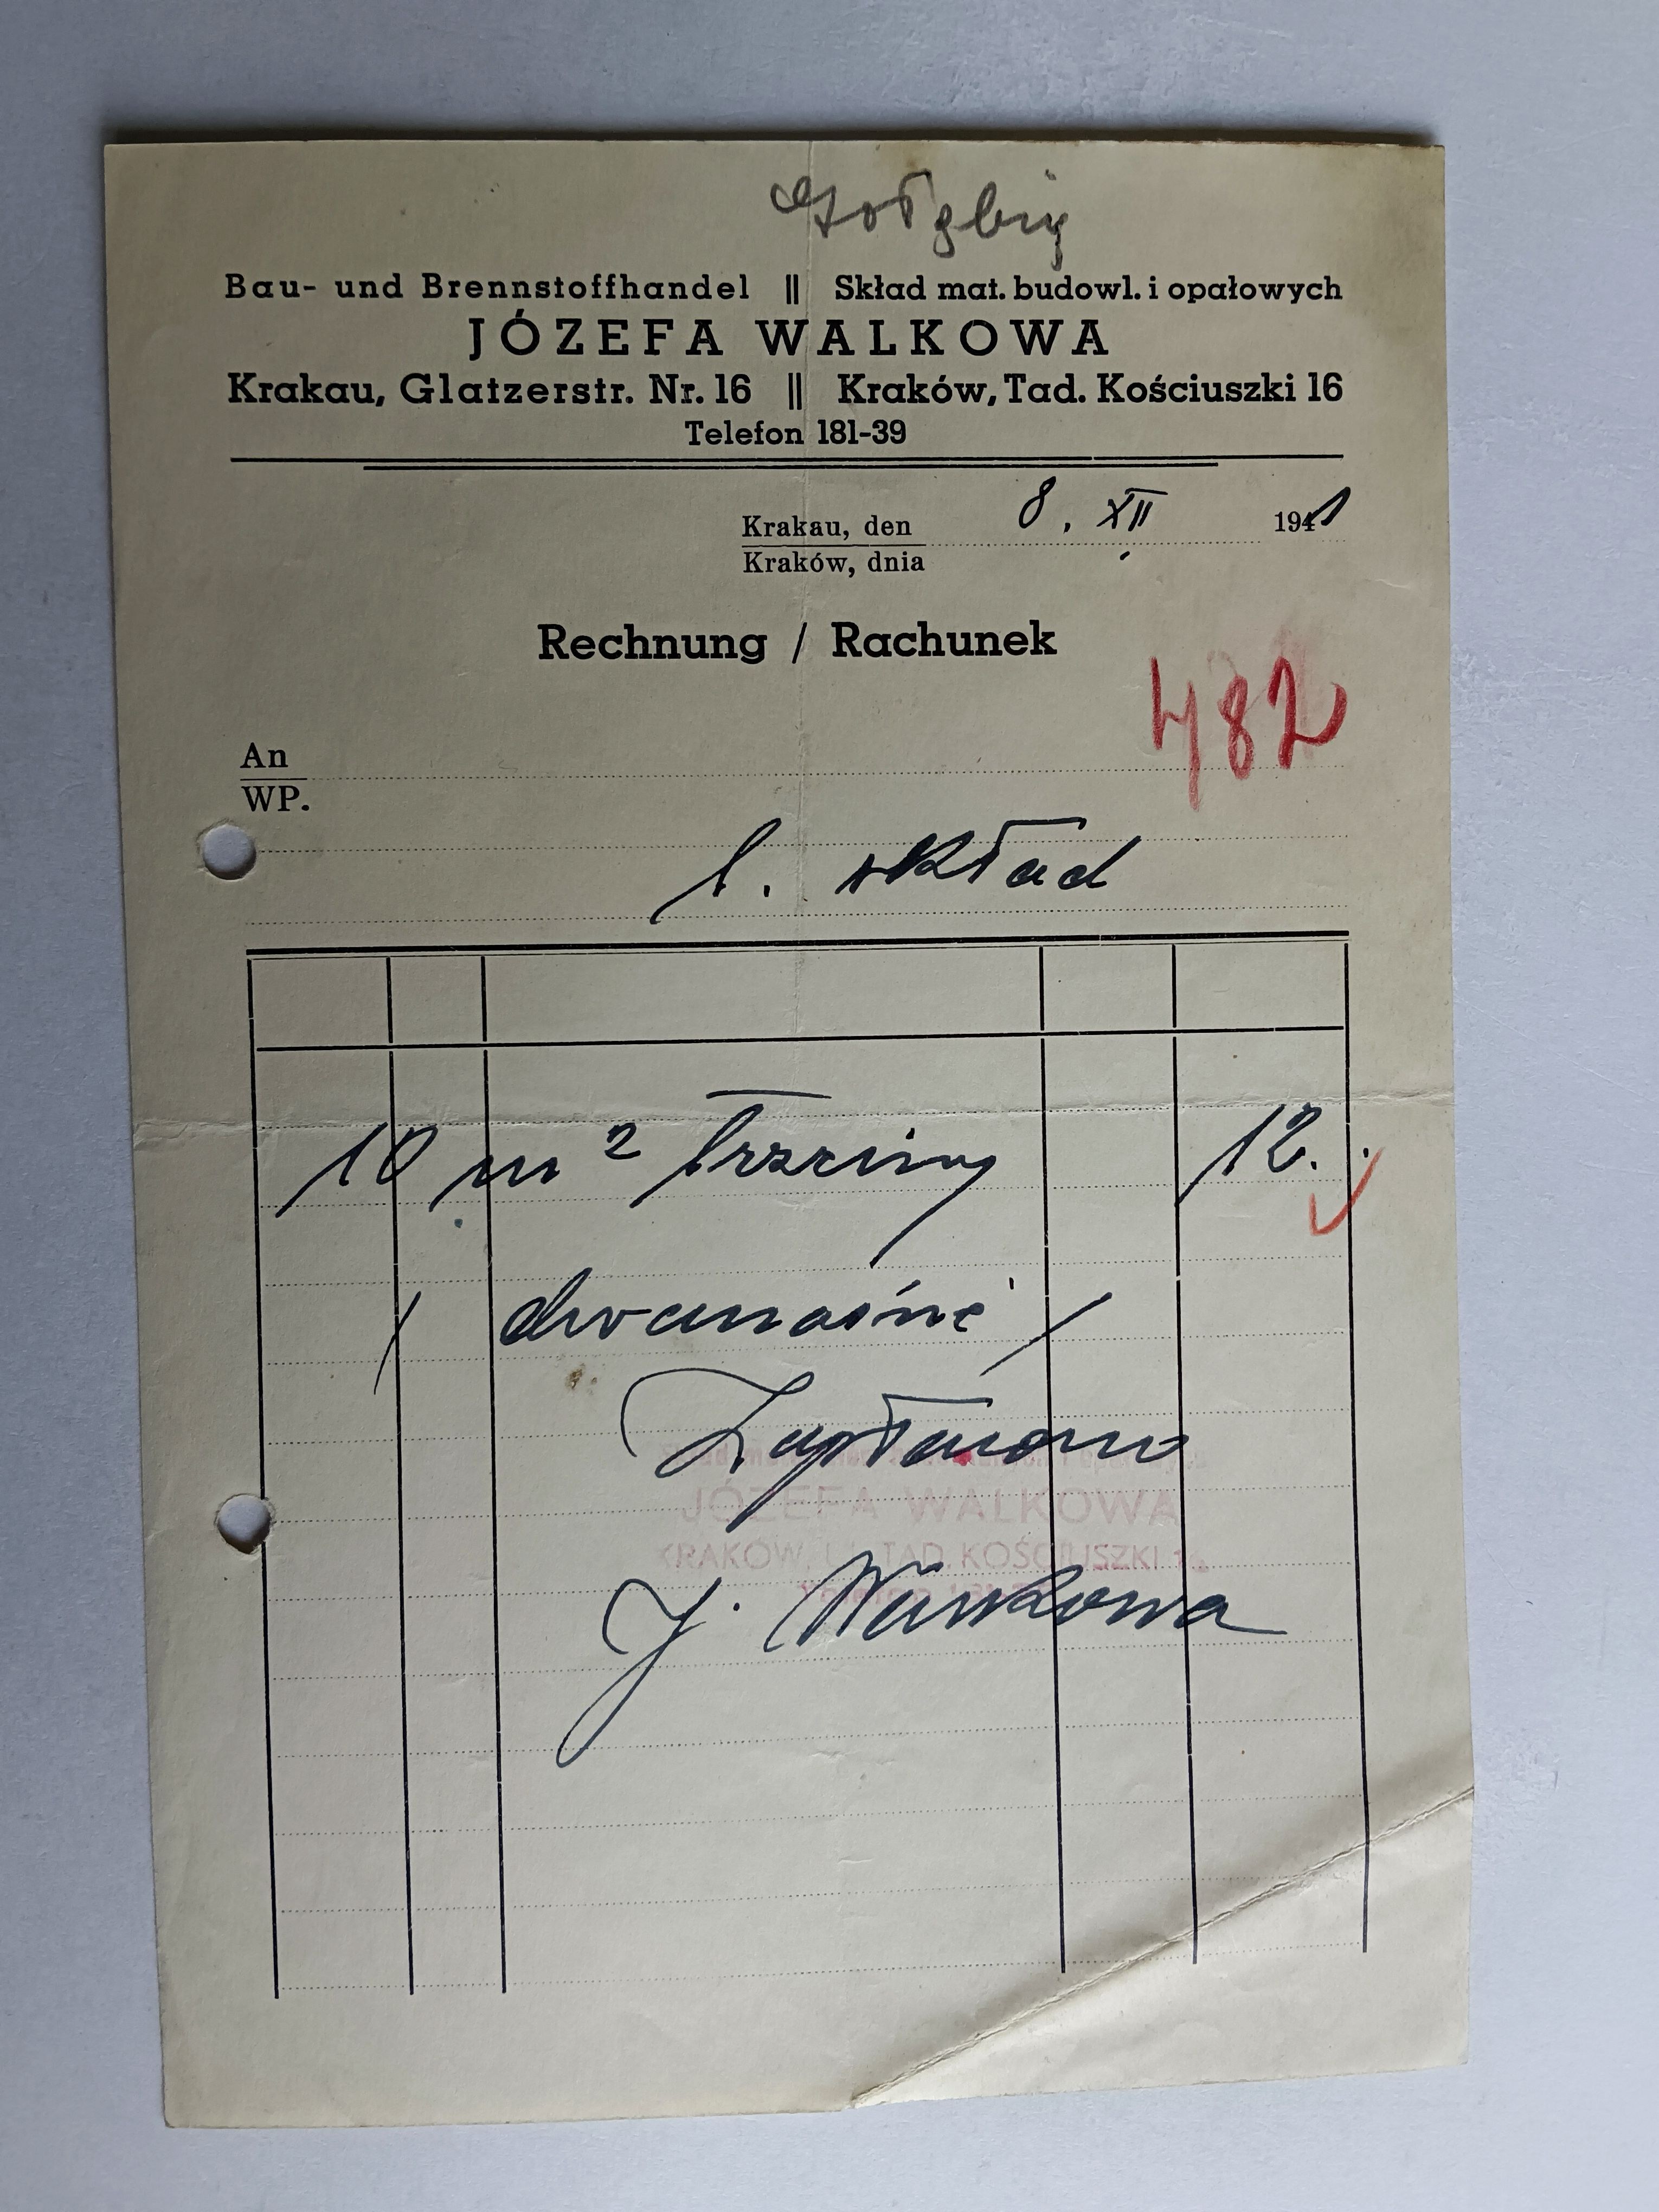 Gołębia
Bau- und Brennstoffhandel || Skład mat. budowl. i opałowych
JÓZEFA WALKOWA
Krakau, Glatzerstr. Nr. 16 || Kraków, Tad. Kościuszki 16
Telefon 181-39
Krakau, den 8. XII 1941
Kraków, dnia
Rechnung / Rachunek
482
An
WP.
skład
10 m² trzciny 12.
/ dwanaście /
Zapłacono
JÓZEFA WALKOWA
KRAKÓW, UL. TAD. KOŚCIUSZKI 16
J. Walkowa